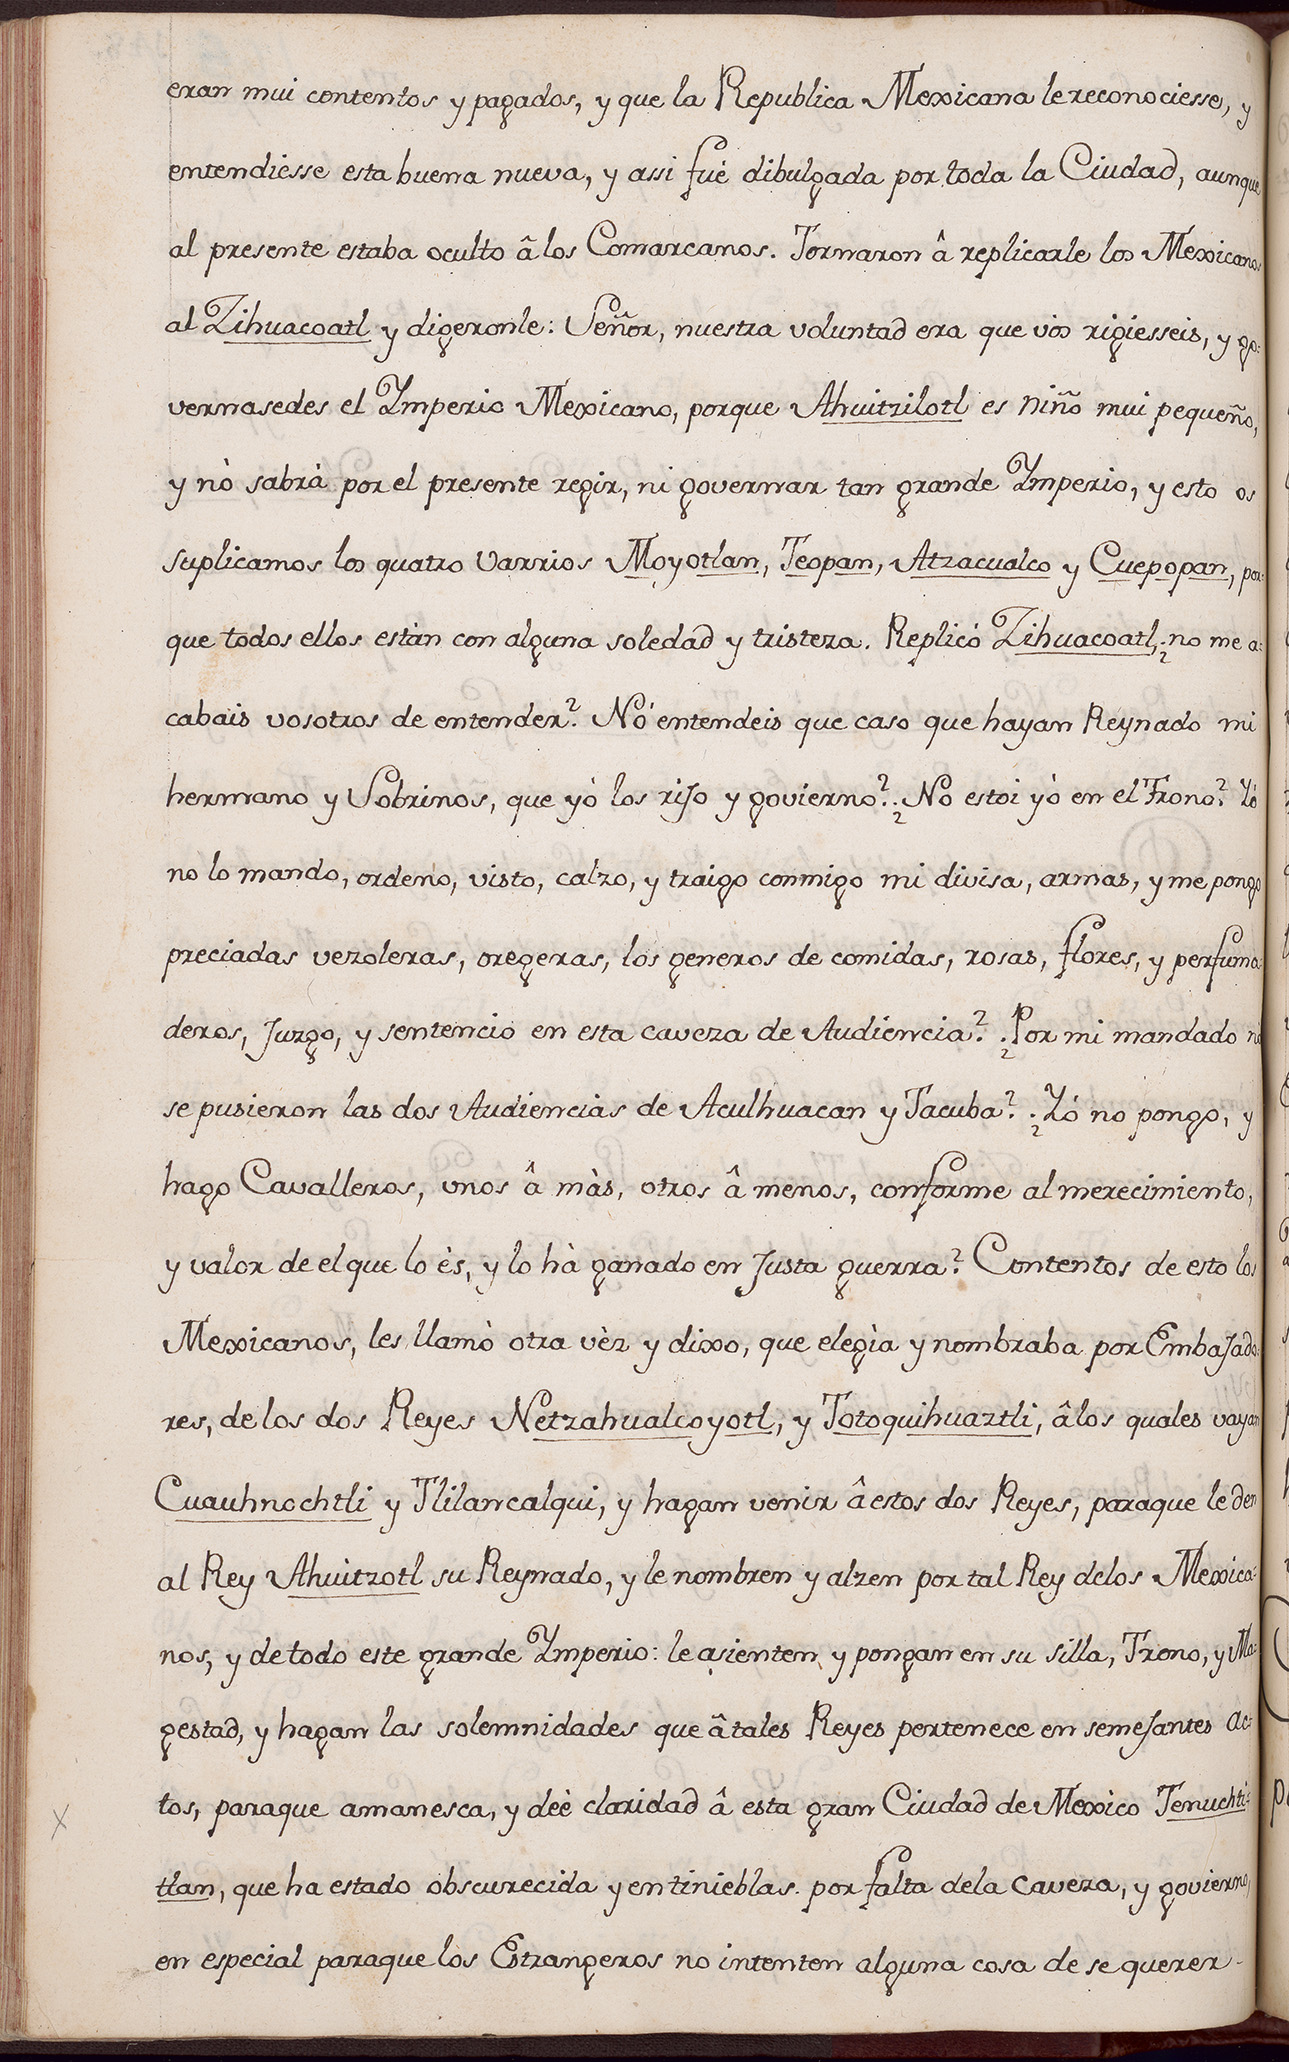 eran mui contentos y pagados, y que la Republica Mexicana le reconociesse, y
entendiesse esta buena nueva, y assi fuè dibulgada por toda la Ciudad, aunque
al presente estaba oculto â los Comarcanos. Tornaron â replicarle los Mexicanos
al Zihuacoatl y digeronle: Señor, nuestra voluntad era que vos rigiesseis, y go=
vernasedes el Ymperio Mexicano, porque Ahuitzilotl es niño mui pequeño,
y nò sabrà por el presente regir, ni governar tan grande Ymperio, y esto os
suplicamos los quatro Varrios Moyotlan, Teopan, Atzacualco y Cuepopan, por=
que todos ellos estàn con alguna soledad y tristeza. Replicó Zihuacoatl, ¿no me a=
cabais vosotros de entender? Nó entendeis que caso que hayan Reynado mi
hermano y Sobrinos, que yò los rijo y govierno? ¿No estoi yò en el Trono? Yó
no lo mando, ordeno, visto, calzo, y traigo conmigo mi divisa, armas, y me pongo
preciadas vezoleras, oregeras, los generos de comidas, rosas, flores, y perfuma=
deros, Juzgo, y sentencio en esta caveza de Audiencia? ¿Por mi mandado no
se pusieron las dos Audiencias de Aculhuacan y Tacuba? ¿Yó no pongo, y
hago Cavalleros, vnos â màs, otros â menos, conforme al merecimiento,
y valor de el que lo ès, y lo hà ganado en Justa guerra? Contentos de esto los
Mexicanos, les llamò otra vèz y dixo, que elegìa y nombraba por Embajado=
res, de los dos Reyes Netzahualcoyotl, y Totoquihuaztli, â los quales vayan
Cuauhnochtli y Tlilancalqui, y hagan venir â estos dos Reyes, paraque le den
al Rey Ahuitzotl su Reynado, y le nombren y alzen por tal Rey delos Mexica=
nos, y de todo este grande Ymperio: le asienten y pongan en su silla, Trono, y Ma=
gestad, y hagan las solemnidades que â tales Reyes pertenece en semejantes ac=
tos, paraque amanesca, y deè claridad â esta gran Ciudad de Mexico Tenuchti=
tlan, que ha estado obscurecida y en tinieblas por falta dela caveza, y govierno,
en especial paraque los Estrangeros no intenten alguna cosa de se querer